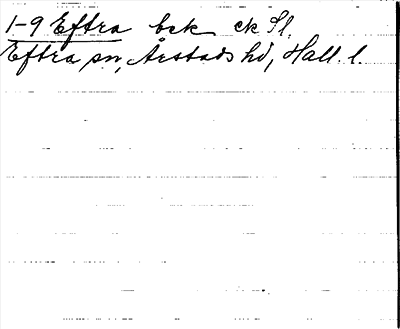 1-9 Eftra bek ck Sl.
Eftra sn, Årstads hd, Hall. l.